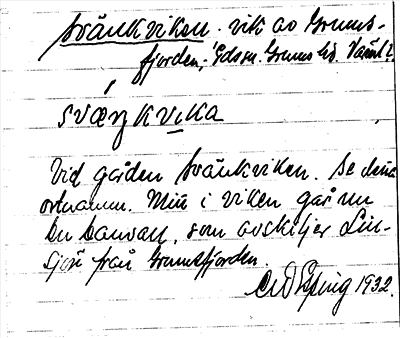 Svänkviken. vik av Grums-
fjorden, Eds sn. Grums hd. Värml.
sväŋkvika
Vid gården Svänkviken. Se detta
ortnamn. Mitt i viken går nu
en banvall, som avskiljer Lin-
sjön från Grumsfjorden.
1932.